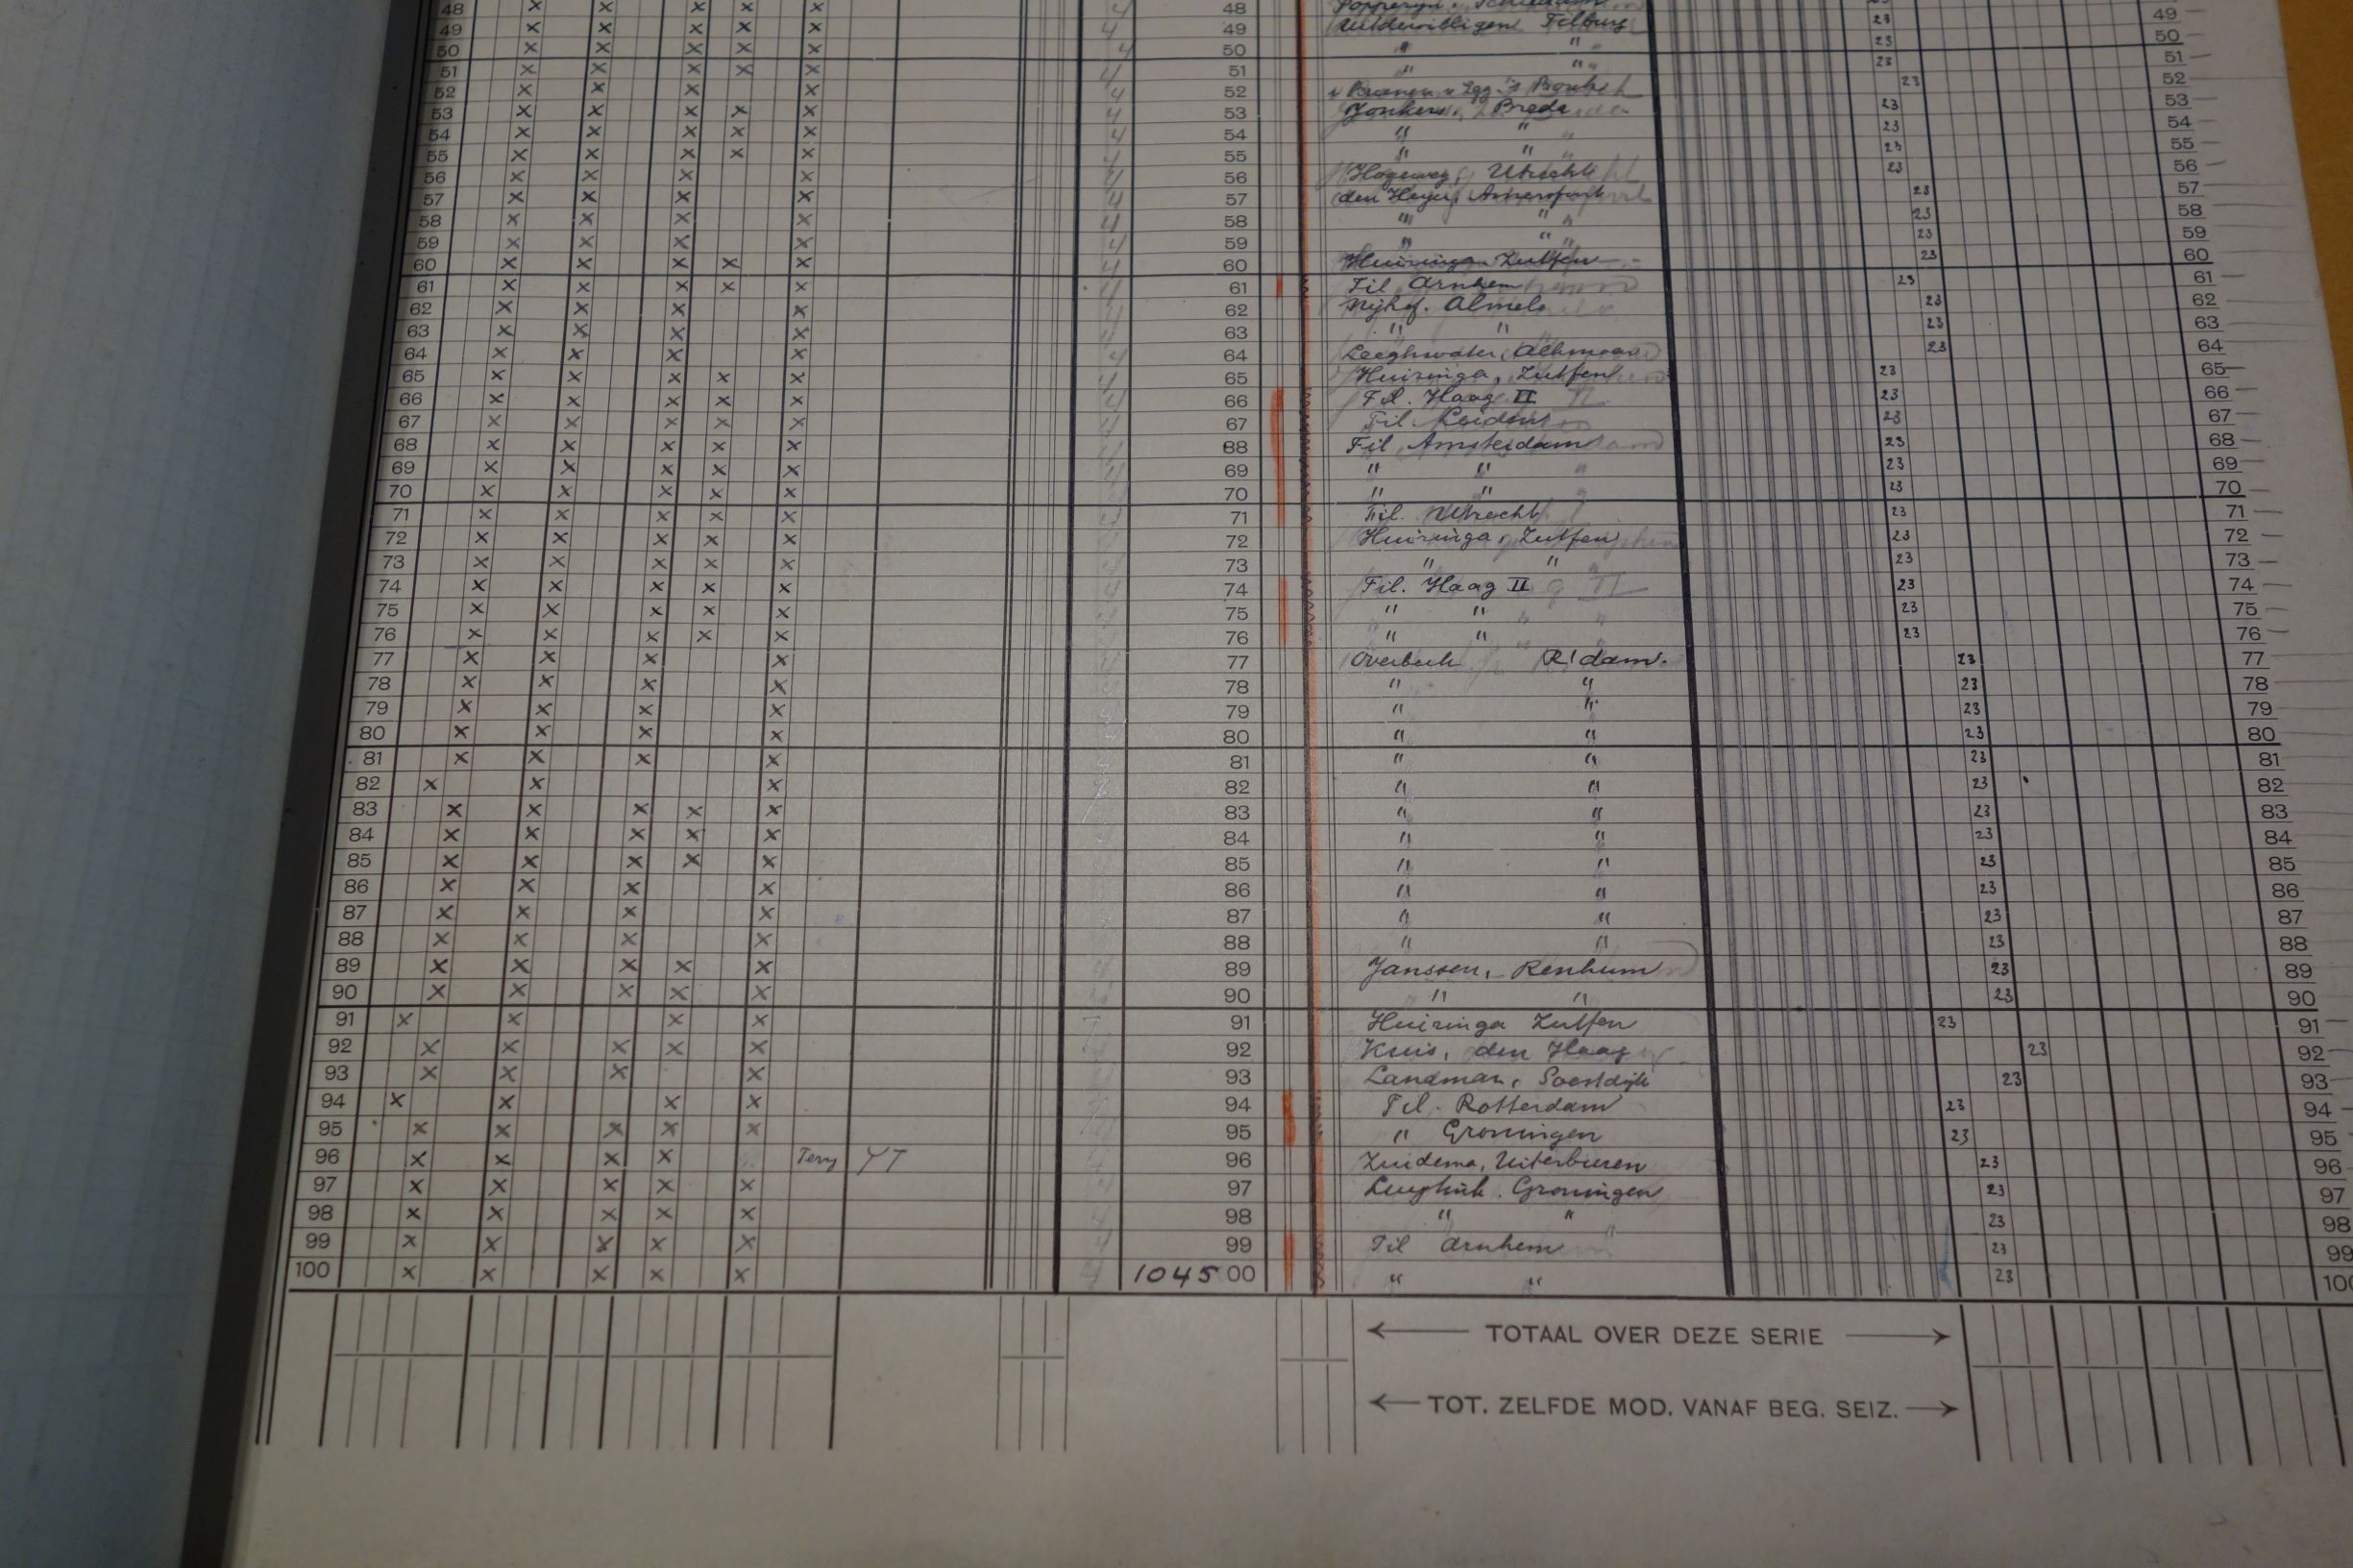 48 × × × × × 4 48 Schiedam 23
49 × × × × × 4 49 Uitdewilligen Tilburg 23 49
50 × × × × × 4 50 " " 23 50
51 × × × × × 4 51 " " 23 51
52 × × × × 4 52 23 52
53 × × × × × 4 53 Jonkers, Breda 23 53
54 × × × × × 4 54 " " 23 54
55 × × × × × 4 55 " " 23 55
56 × × × × 4 56 Hogeweg, Utrecht 23 56
57 × × × × 4 57 den Heyer, Amersfoort 23 57
58 × × × × 4 58 " " 23 58
59 × × × × 4 59 " " 23 59
60 × × × × × 4 60 Huizinga Zutfen 23 60
61 × × × × × 4 61 Fil Arnhem 23 61
62 × × × × 4 62 Nyhof. Almelo 23 62
63 × × × × 4 63 " " 23 63
64 × × × × 4 64 Leeghwater, Alkmaar 23 64
65 × × × × × 4 65 Huizinga, Zutfen 23 65
66 × × × × × 4 66 Fil. Haag II 23 66
67 × × × × × 4 67 Fil. Leiden 23 67
68 × × × × × 4 68 Fil Amsterdam 23 68
69 × × × × × 4 69 " " 23 69
70 × × × × × 4 70 " " 23 70
71 × × × × × 4 71 Fil. Utrecht 23 71
72 × × × × × 4 72 Huizinga, Zutfen 23 72
73 × × × × × 4 73 " " 23 73
74 × × × × × 4 74 Fil. Haag II 23 74
75 × × × × × 4 75 " " 23 75
76 × × × × × 4 76 " " 23 76
77 × × × × 4 77 Overbeek R'dam. 23 77
78 × × × × 78 " " 23 78
79 × × × × 79 " " 23 79
80 × × × × 80 " " 23 80
81 × × × × 81 " " 23 81
82 × × × 82 " " 23 82
83 × × × × × 83 " " 23 83
84 × × × × × 84 " " 23 84
85 × × × × × 85 " " 23 85
86 × × × × 86 " " 23 86
87 × × × × 87 " " 23 87
88 × × × × 88 " " 23 88
89 × × × × × 4 89 Janssen, Renkum 23 89
90 × × × × × 4 90 " " 23 90
91 × × × × 91 Huizinga Zutfen 23 91
92 × × × × × 92 Kruis, den Haag 23 92
93 × × × × 93 Landman, Soestdijk 23 93
94 × × × × 94 Fil. Rotterdam 23 94
95 × × × × × 95 " Groningen 23 95
96 × × × × Terry YT 4 96 Zuidema, Uiterburen 23 96
97 × × × × × 4 97 Groningen 23 97
98 × × × × × 4 98 " " 23 98
99 × × × × × 4 99 Fil Arnhem 23 99
100 × × × × × 4 104500 " " 23 100
TOTAAL OVER DEZE SERIE
TOT. ZELFDE MOD. VANAF BEG. SEIZ.